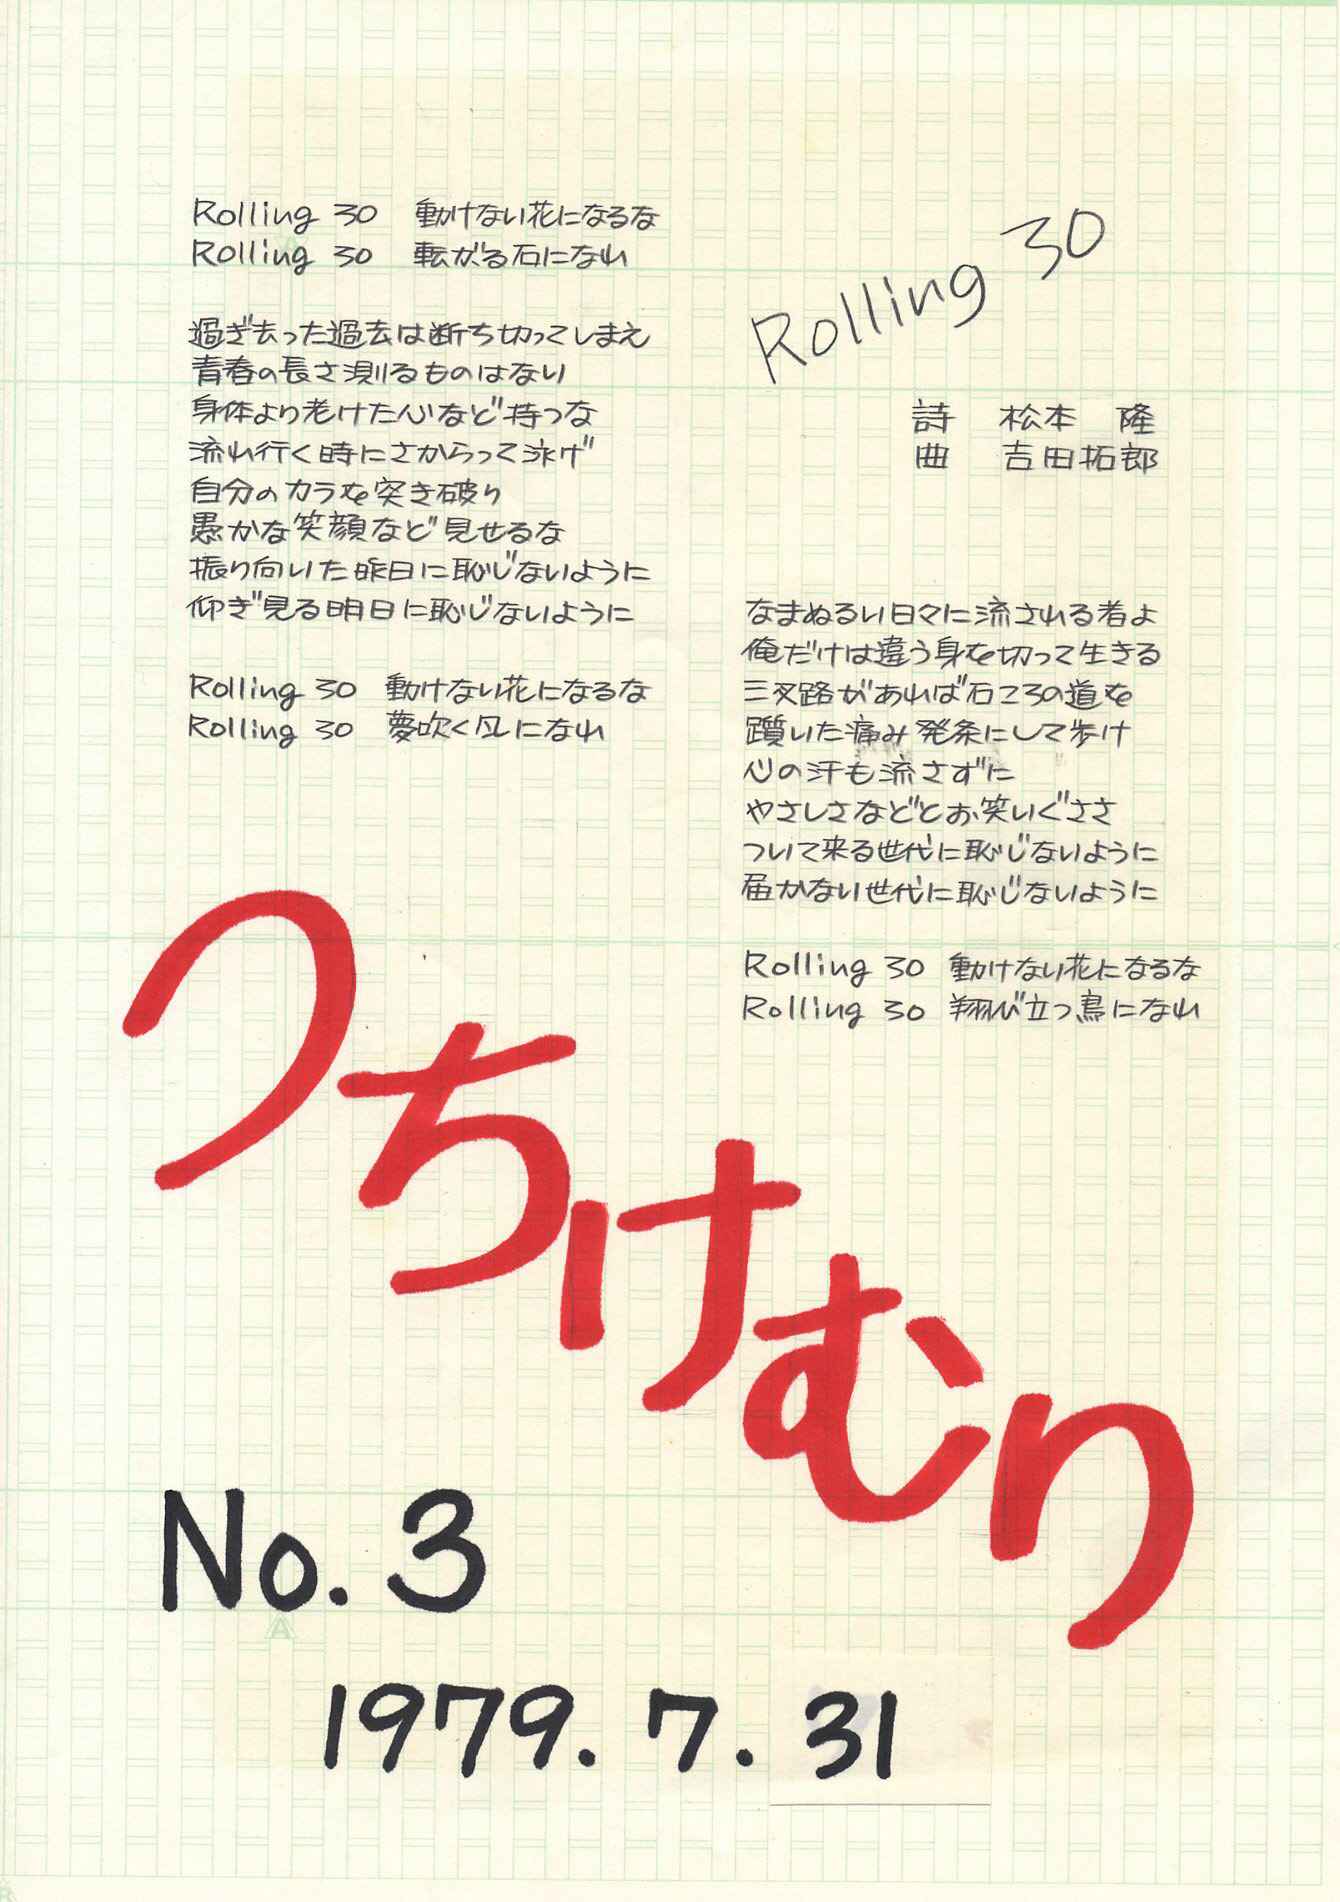 Rolling 30
詩 松本 隆
曲 吉田拓郎
Rolling 30 動けない花になるな
Rolling 30 転がる石になれ
過ぎ去った過去は断ち切ってしまえ
青春の長さ測るものはない
身体より老けた心など持つな
流れ行く時にさからって泳げ
自分のカラを突き破り
愚かな笑顔など見せるな
振り向いた昨日に恥じないように
仰ぎ見る明日に恥じないように
Rolling 30 動けない花になるな
Rolling 30 夢吹く風になれ
なまぬるい日々に流される者よ
俺だけは違う身を切って生きる
三叉路があれば石ころの道を
躓いた痛み発条にして歩け
心の汗も流さずに
やさしさなどとお笑いぐささ
ついて来る世代に恥じないように
届かない世代に恥じないように
Rolling 30 動けない花になるな
Rolling 30 翔び立つ鳥になれ
つちけむり
No. 3
1979. 7. 31
A